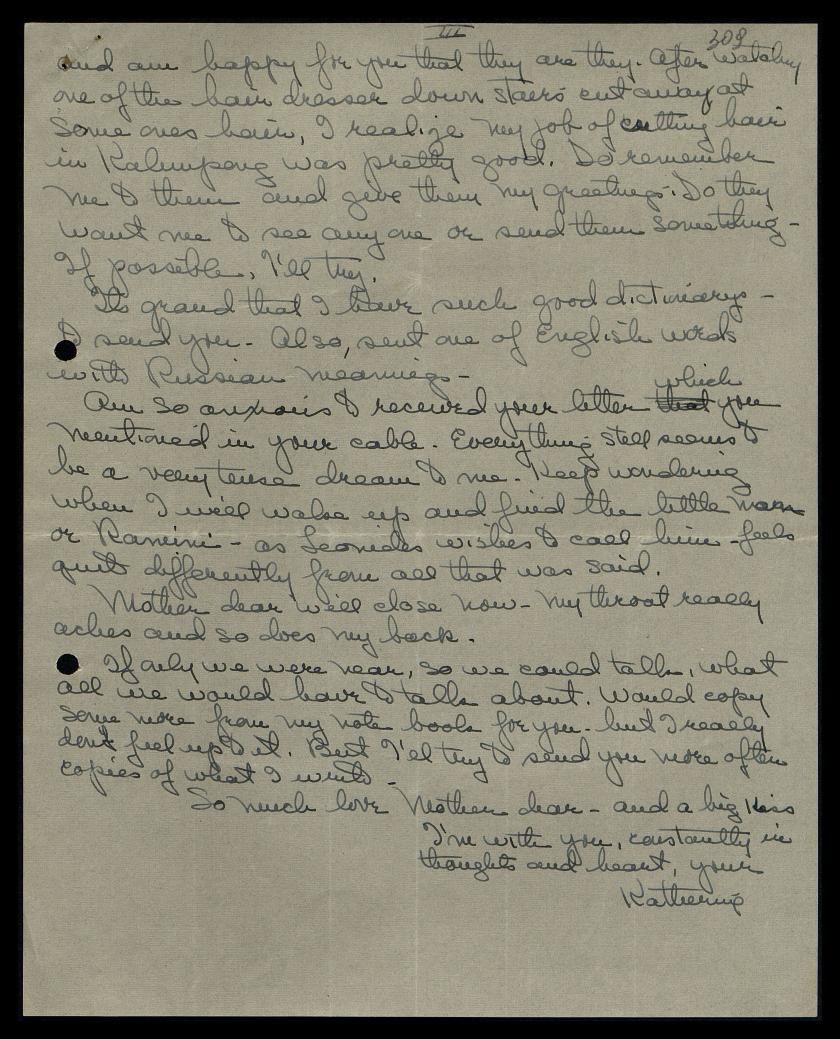 III
309
and am happy for you that they are they. After watching
one of the hair dresser down stairs cut away at
Some ones hair, I realize my job of cutting hair
in Kalimpong was pretty good. Do remember
me to them and give them my greetings. Do they
want me to see any one or send them something -
If possible, I'll try.
Its grand that I have such good dictionarys -
to send you - Also, sent one of English words
with Russian meanings -
which
Am so anxious to received your letter that you
mentioned in your cable. Everything still seems to
be a very tense dream to me. Keep wondering
when I will wake up and find the little man
or Ramini - as Leonidas wishes to call him - feels
quite differently from all that was said.
Mother dear will close now - My throat really
aches and so does my back.
If only we were near, so we could talk, what
all we would have to talk about. Would copy
some more from my note book for you - but I really
don't feel up to it. But I'll try to send you more often
copies of what I write -
So much love Mother dear - and a big kiss
I'm with you, constantly in
thoughts and heart, your
Katherine